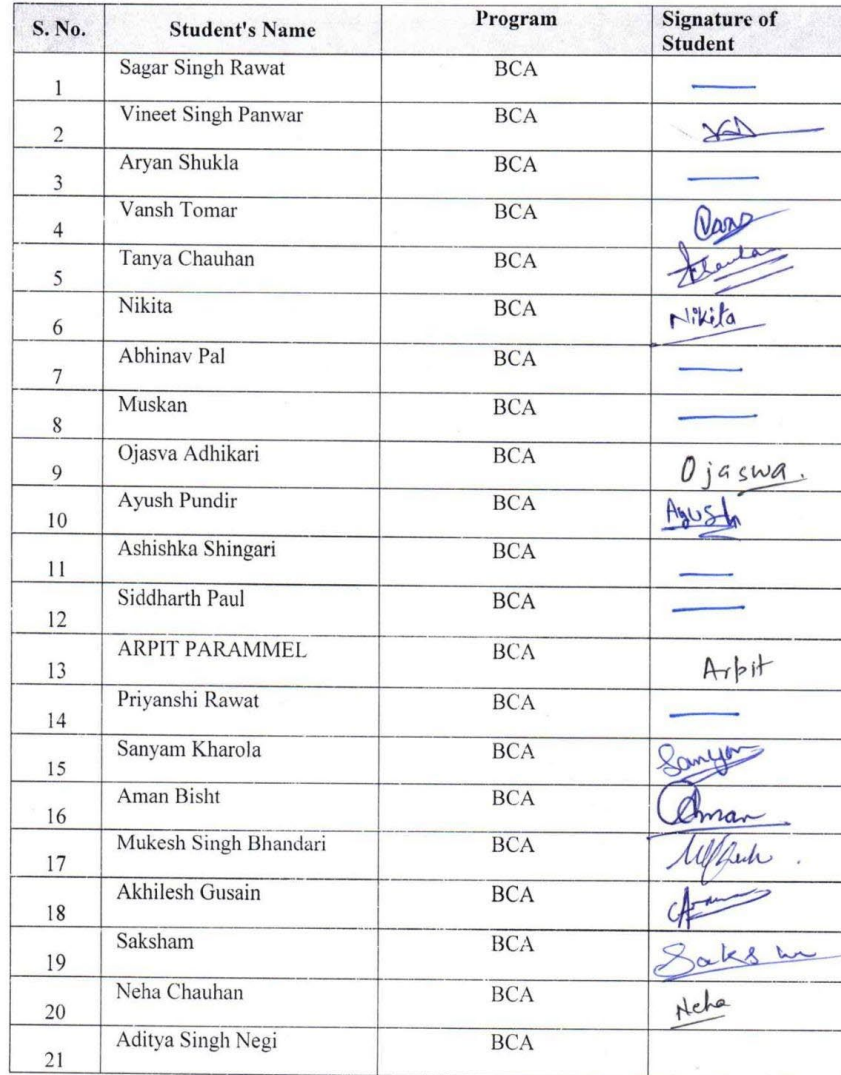 S. No. Student's Name Program Signature of
Student
1 Sagar Singh Rawat BCA
2 Vineet Singh Panwar BCA
3 Aryan Shukla BCA
4 Vansh Tomar BCA
5 Tanya Chauhan BCA
6 Nikita BCA Nikita
7 Abhinav Pal BCA
8 Muskan BCA
9 Ojasva Adhikari BCA Ojaswa.
10 Ayush Pundir BCA Ayush
11 Ashishka Shingari BCA
12 Siddharth Paul BCA
13 ARPIT PARAMMEL BCA Arpit
14 Priyanshi Rawat BCA
15 Sanyam Kharola BCA
16 Aman Bisht BCA Aman
17 Mukesh Singh Bhandari BCA
18 Akhilesh Gusain BCA
19 Saksham BCA
20 Neha Chauhan BCA Neha
21 Aditya Singh Negi BCA